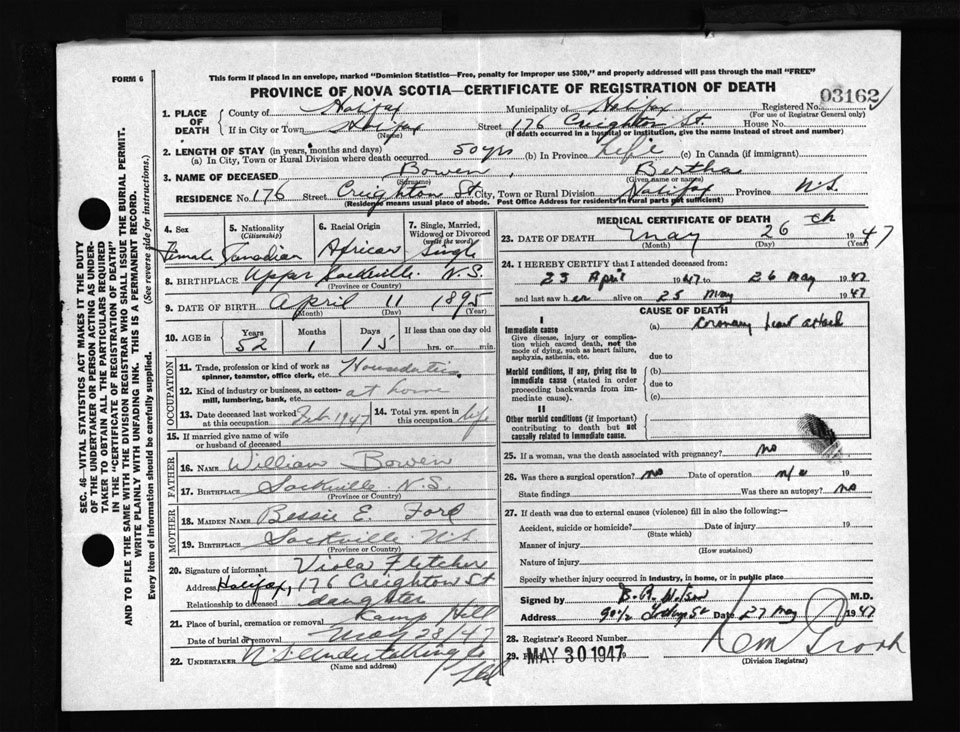 FORM 6
This form if placed in an envelope, marked "Dominion Statistics—Free, penalty for improper use $300," and properly addressed will pass through the mail "FREE"
PROVINCE OF NOVA SCOTIA—CERTIFICATE OF REGISTRATION OF DEATH
03162
1. PLACE OF DEATH
County of Halifax Municipality of Halifax Registered No.
(For use of Registrar General only)
If in City or Town Halifax Street 176 Creighton St. House No.
(Name) (If death occurred in a hospital or institution, give the name instead of street and number)
2. LENGTH OF STAY (in years, months and days)
(a) In City, Town or Rural Division where death occurred 50 yrs (b) In Province Life (c) In Canada (if immigrant)
3. NAME OF DECEASED Bowen, Bertha
(Surname) (Given name or names)
RESIDENCE No. 176 Street Creighton St City, Town or Rural Division Halifax Province N.S.
(Residence means usual place of abode. Post Office Address for residents in rural parts not sufficient)
4. Sex Female
5. Nationality (Citizenship) Canadian
6. Racial Origin African
7. Single, Married, Widowed or Divorced (write the word) Single
8. BIRTHPLACE Upper Sackville N.S.
(Province or Country)
9. DATE OF BIRTH April 11 1895
(Month) (Day) (Year)
10. AGE in Years Months Days If less than one day old
52 1 15 hrs. or min.
OCCUPATION
11. Trade, profession or kind of work as spinner, teamster, office clerk, etc. Houseduties
12. Kind of industry or business, as cotton-mill, lumbering, bank, etc. at home
13. Date deceased last worked at this occupation Feb 1947
14. Total yrs. spent in this occupation life
15. If married give name of wife or husband of deceased
FATHER
16. NAME William Bowen
17. BIRTHPLACE Sackville N.S.
(Province or Country)
MOTHER
18. MAIDEN NAME Bessie E. Ford
19. BIRTHPLACE Sackville N.S.
(Province or Country)
20. Signature of informant Viola Fletcher
Address Halifax, 176 Creighton St
Relationship to deceased daughter
21. Place of burial, cremation or removal Camp Hill
Date of burial or removal May 28/47
22. UNDERTAKER N.S. Undertaking Co Ltd
(Name and address)
MEDICAL CERTIFICATE OF DEATH
23. DATE OF DEATH May 26th 1947
(Month) (Day) (Year)
24. I HEREBY CERTIFY that I attended deceased from:
23 April 1947 to 26 May 1947
and last saw her alive on 25 May 1947
CAUSE OF DEATH
I
Immediate cause (a) Coronary heart attack
Give disease, injury or complication which caused death, not the mode of dying, such as heart failure, asphyxia, asthenia, etc.
due to
Morbid conditions, if any, giving rise to immediate cause (stated in order proceeding backwards from immediate cause).
(b)
due to
(c)
II
Other morbid conditions (if important) contributing to death but not causally related to immediate cause.
25. If a woman, was the death associated with pregnancy? no
26. Was there a surgical operation? no Date of operation n/a 19
State findings Was there an autopsy? no
27. If death was due to external causes (violence) fill in also the following:—
Accident, suicide or homicide? Date of injury 19
(State which)
Manner of injury
(How sustained)
Nature of injury
Specify whether injury occurred in industry, in home, or in public place
Signed by M.D.
Address Date 27 May 1947
28. Registrar's Record Number
29. MAY 30 1947
(Division Registrar)
SEC. 46—VITAL STATISTICS ACT MAKES IT THE DUTY
OF THE UNDERTAKER OR PERSON ACTING AS UNDER-
TAKER TO OBTAIN ALL THE PARTICULARS REQUIRED
IN THE "CERTIFICATE OF REGISTRATION OF DEATH"
AND TO FILE THE SAME WITH THE DIVISION REGISTRAR WHO SHALL ISSUE THE BURIAL PERMIT.
WRITE PLAINLY WITH UNFADING INK. THIS IS A PERMANENT RECORD.
Every item of information should be carefully supplied. (See reverse side for instructions.)